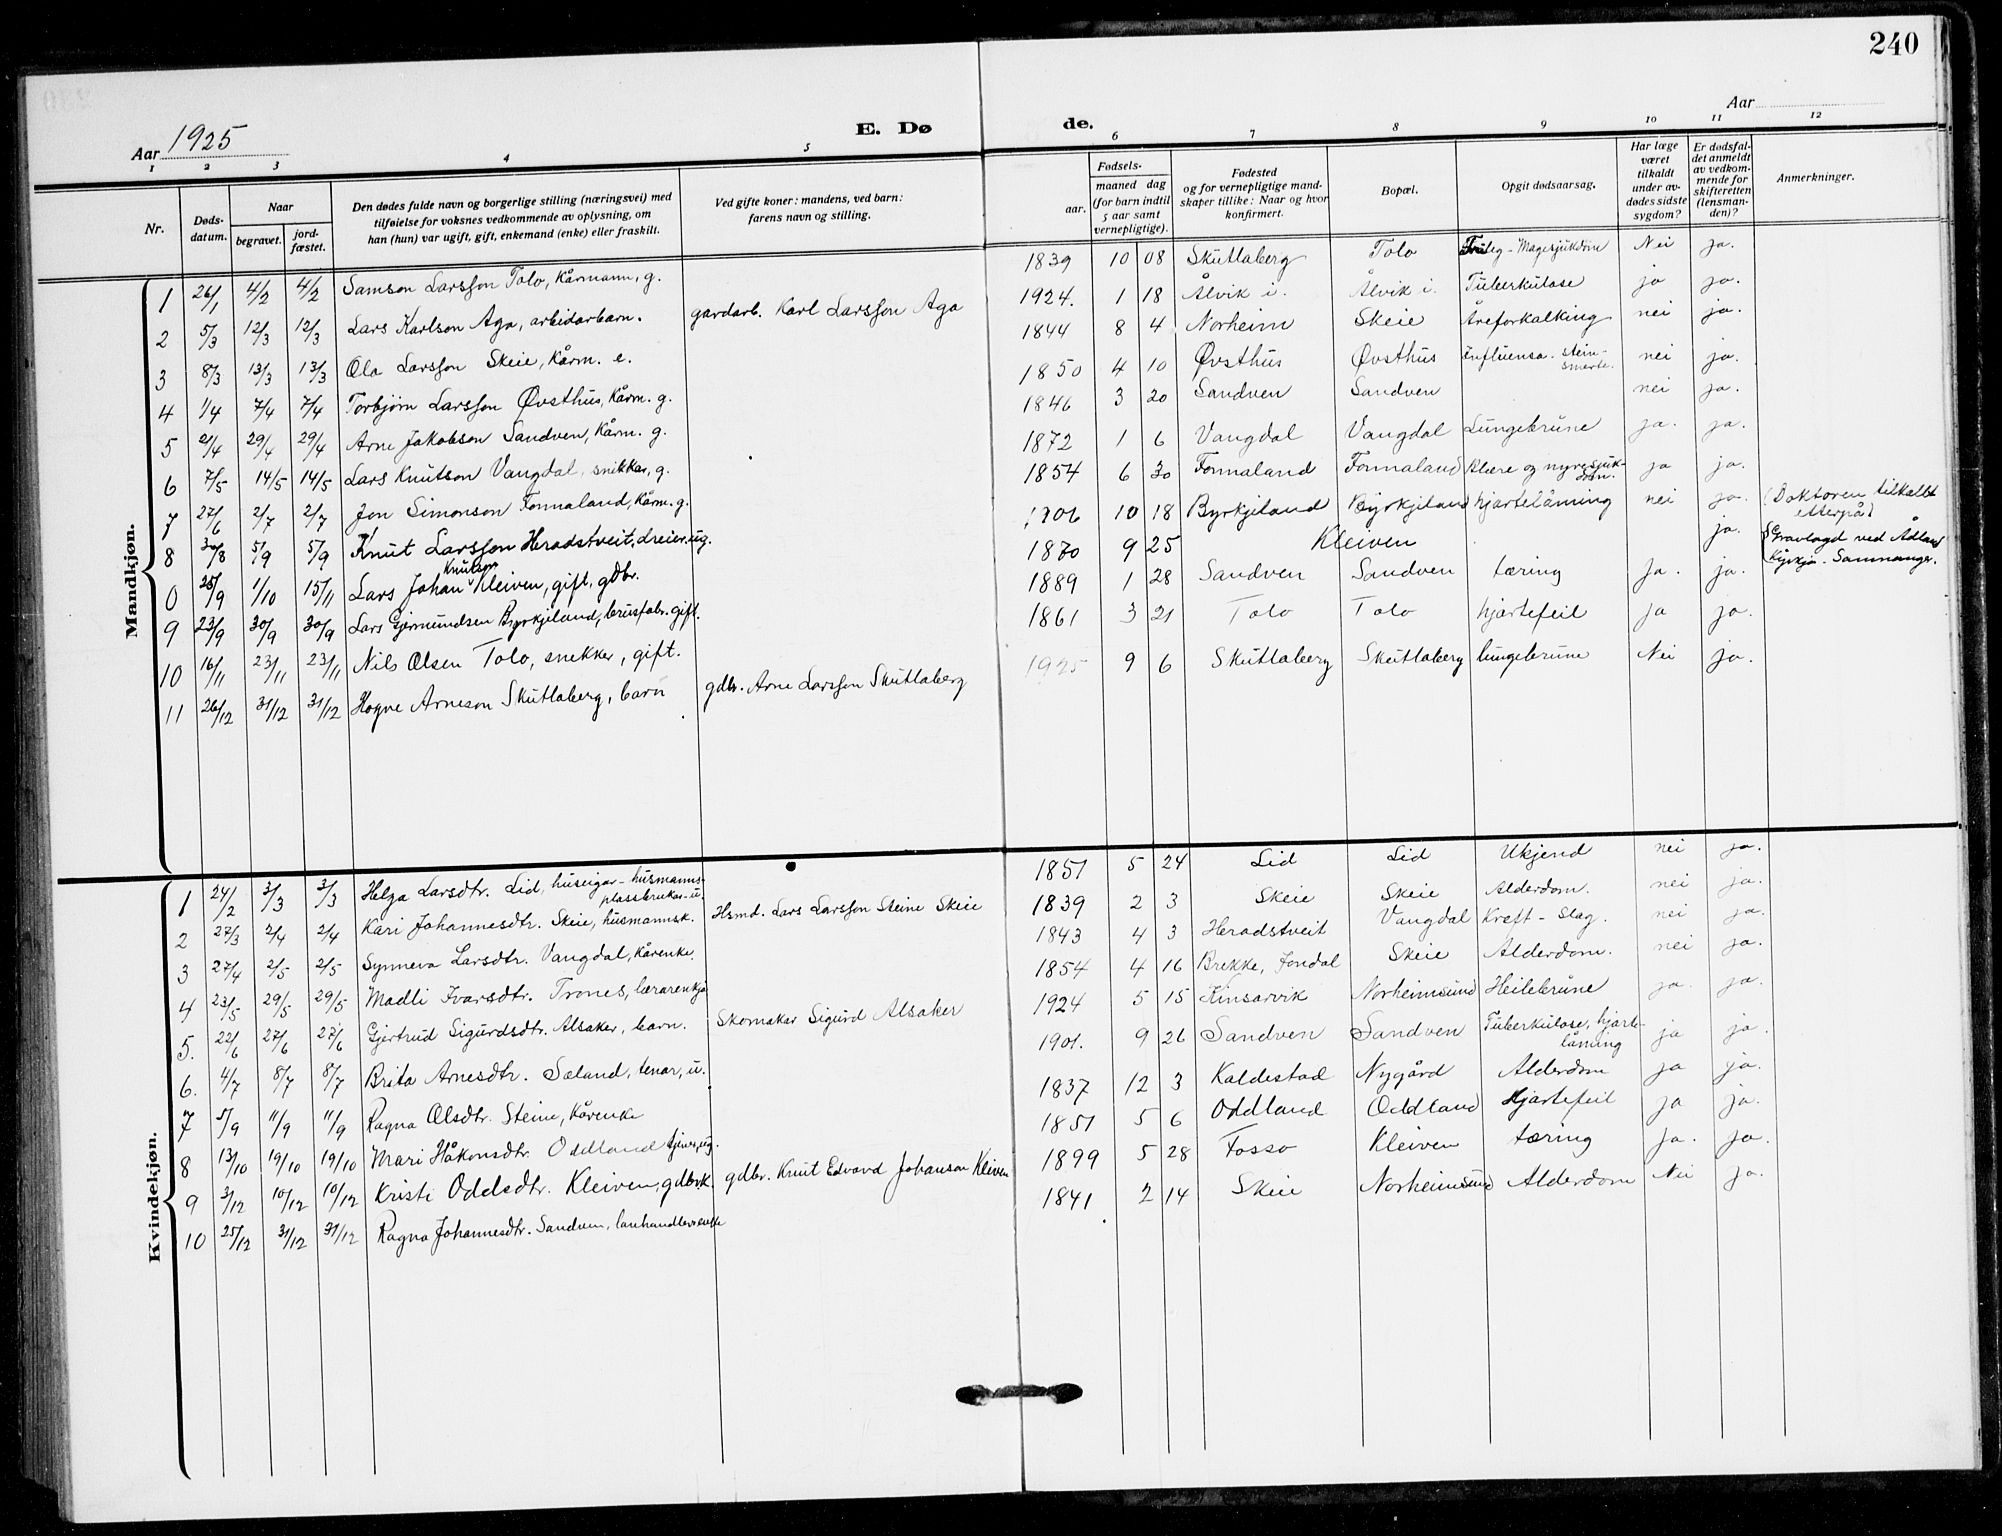 240
Aar 1925
E. Dø
de.
Aar
1 2 3 4 5 6 7 8 9 10 11 12
Nr.
Døds-
datum.
Naar
begravet.
jord-
fæstet.
Den dødes fulde navn og borgerlige stilling (næringsvei) med
tilføielse for voksnes vedkommende av oplysning, om
han (hun) var ugift, gift, enkemand (enke) eller fraskilt.
Ved gifte koner: mandens, ved barn:
farens navn og stilling.
Fødsels-
aar.
maaned dag
(for barn indtil
5 aar samt
vernepligtige).
Fødested
og for vernepligtige mand-
skaper tillike: Naar og hvor
konfirmert.
Bopæl.
Opgit dødsaarsag.
Har læge
været
tilkaldt
under av-
dødes sidste
sygdom?
Er dødsfal-
det anmeldt
av vedkom-
mende for
skifteretten
(lensman-
den)?
Anmerkninger.
Mandkjøn.
1 26/1 4/2 4/2 Samson Larsson Tolo, Kårmann, g. 1839 10 08 Skutlaberg Tolo Magesjukdom Nei ja.
2 5/3 12/3 12/3 Lars Karlson Aga, arbidarbarn. gardarb. Karl Larsson Aga 1924. 1 18 Ålvik i. Ålvik i. Tuberkulose ja ja.
3 8/3 13/3 13/3 Ola Larsson Skeie, Kårm. e. 1844 8 4 Norheim Skeie Åreforkalking nei ja.
4 1/4 7/4 7/4 Torbjørn Larsson Øvsthus, Kårm. g. 1850 4 10 Øvsthus Øvsthus Influensa. stein-
smerte. nei ja.
5 21/4 29/4 29/4 Arne Jakobson Sandven, Kårm. g. 1846 3 20 Sandven Sandven nei ja.
6 7/5 14/5 14/5 Lars Knutson Vangdal, snikkar, g. 1872 1 6 Vangdal Vangdal Lungebrune ja. ja.
7 27/6 2/7 2/7 Jon Simonson Fonnaland, Kårm. g. 1854 6 30 Fonnaland Fonnaland Blære og nyresjuk-
dom. ja ja.
8 30/8 5/9 5/9 Knut Larsson Heradstveit, dreier, ug. 1906 10 18 Byrkjeland Byrkjeland hjartelåming nei ja. (Doktoren tilkallt
etterpå)
0 25/9 1/10 15/11 Lars Johan Knutson Kleiven, gift, gdbr. 1870 9 25 Kleiven ja. Gravlagd ved Ådland
Kyrkja - Samnanger.
9 23/9 30/9 30/9 Lars Gjermundsen Byrkjeland, brusfabr. gift. 1889 1 28 Sandven Sandven tæring Ja. ja.
10 16/11 23/11 23/11 Nils Olsen Tolo, snekker, gift. 1861 3 21 Tolo Tolo hjartefeil ja ja.
11 26/12 31/12 31/12 Hogne Arneson Skutlaberg, barn gdbr. Arne Larsson Skutlaberg 1925 9 6 Skutlaberg Skutlaberg lungebrune Nei ja.
Kvindekjøn.
1 24/2 3/3 3/3 Helga Larsdtr. Lid, huseigar - husmanns-
plassbrukar - u. 1851 5 24 Lid Lid Ukjend nei ja.
2 27/3 2/4 2/4 Kari Johannesdtr. Skeie, husmannsk. Hsmd. Lars Larsson Steine Skeie 1839 2 3 Skeie Skeie Alderdom. nei ja.
3 27/4 2/5 2/5 Synneva Larsdtr. Vangdal, Kårenke. 1843 4 3 Heradstveit Vangdal Kreft - Slag. nei ja.
4 23/5 29/5 29/5 Madli Ivarsdtr. Trones, lærarenkja 1854 4 16 Brekke, Jondal Skeie Alderdom. nei ja.
5. 22/6 27/6 27/6 Gjertrud Sigurdsdtr. Alsaker, barn. Skomakar Sigurd Alsaker 1924 5 15 Kinsarvik Norheimsund Heilebrune ja. ja.
6. 4/7 8/7 8/7 Brita Arnesdtr. Sæland, tenar, u. 1901. 9 26 Sandven Sandven Tuberkulose, hjarte-
låming ja ja.
7 5/9 11/9 11/9 Ragna Olsdtr. Steine, Kårenke 1837 12 3 Kaldestad Nygård Alderdom ja ja.
8 13/10 19/10 19/10 Mari Håkonsdtr. Oddland tjener, ug. 1851 5 6 Oddland Oddland Hjartefeil ja ja.
9 3/12 10/12 10/12 Kristi Oddsdtr. Kleiven, gdbr.k. gdbr. Knut Edvard Johanson Kleiven 1899 5 28 Fosso Kleiven tæring Ja. ja.
10 25/12 31/12 31/12 Ragna Johannesdtr. Sandven, lanhandlerenke 1841 2 14 Skeie Norheimsund Alderdom Nei ja.